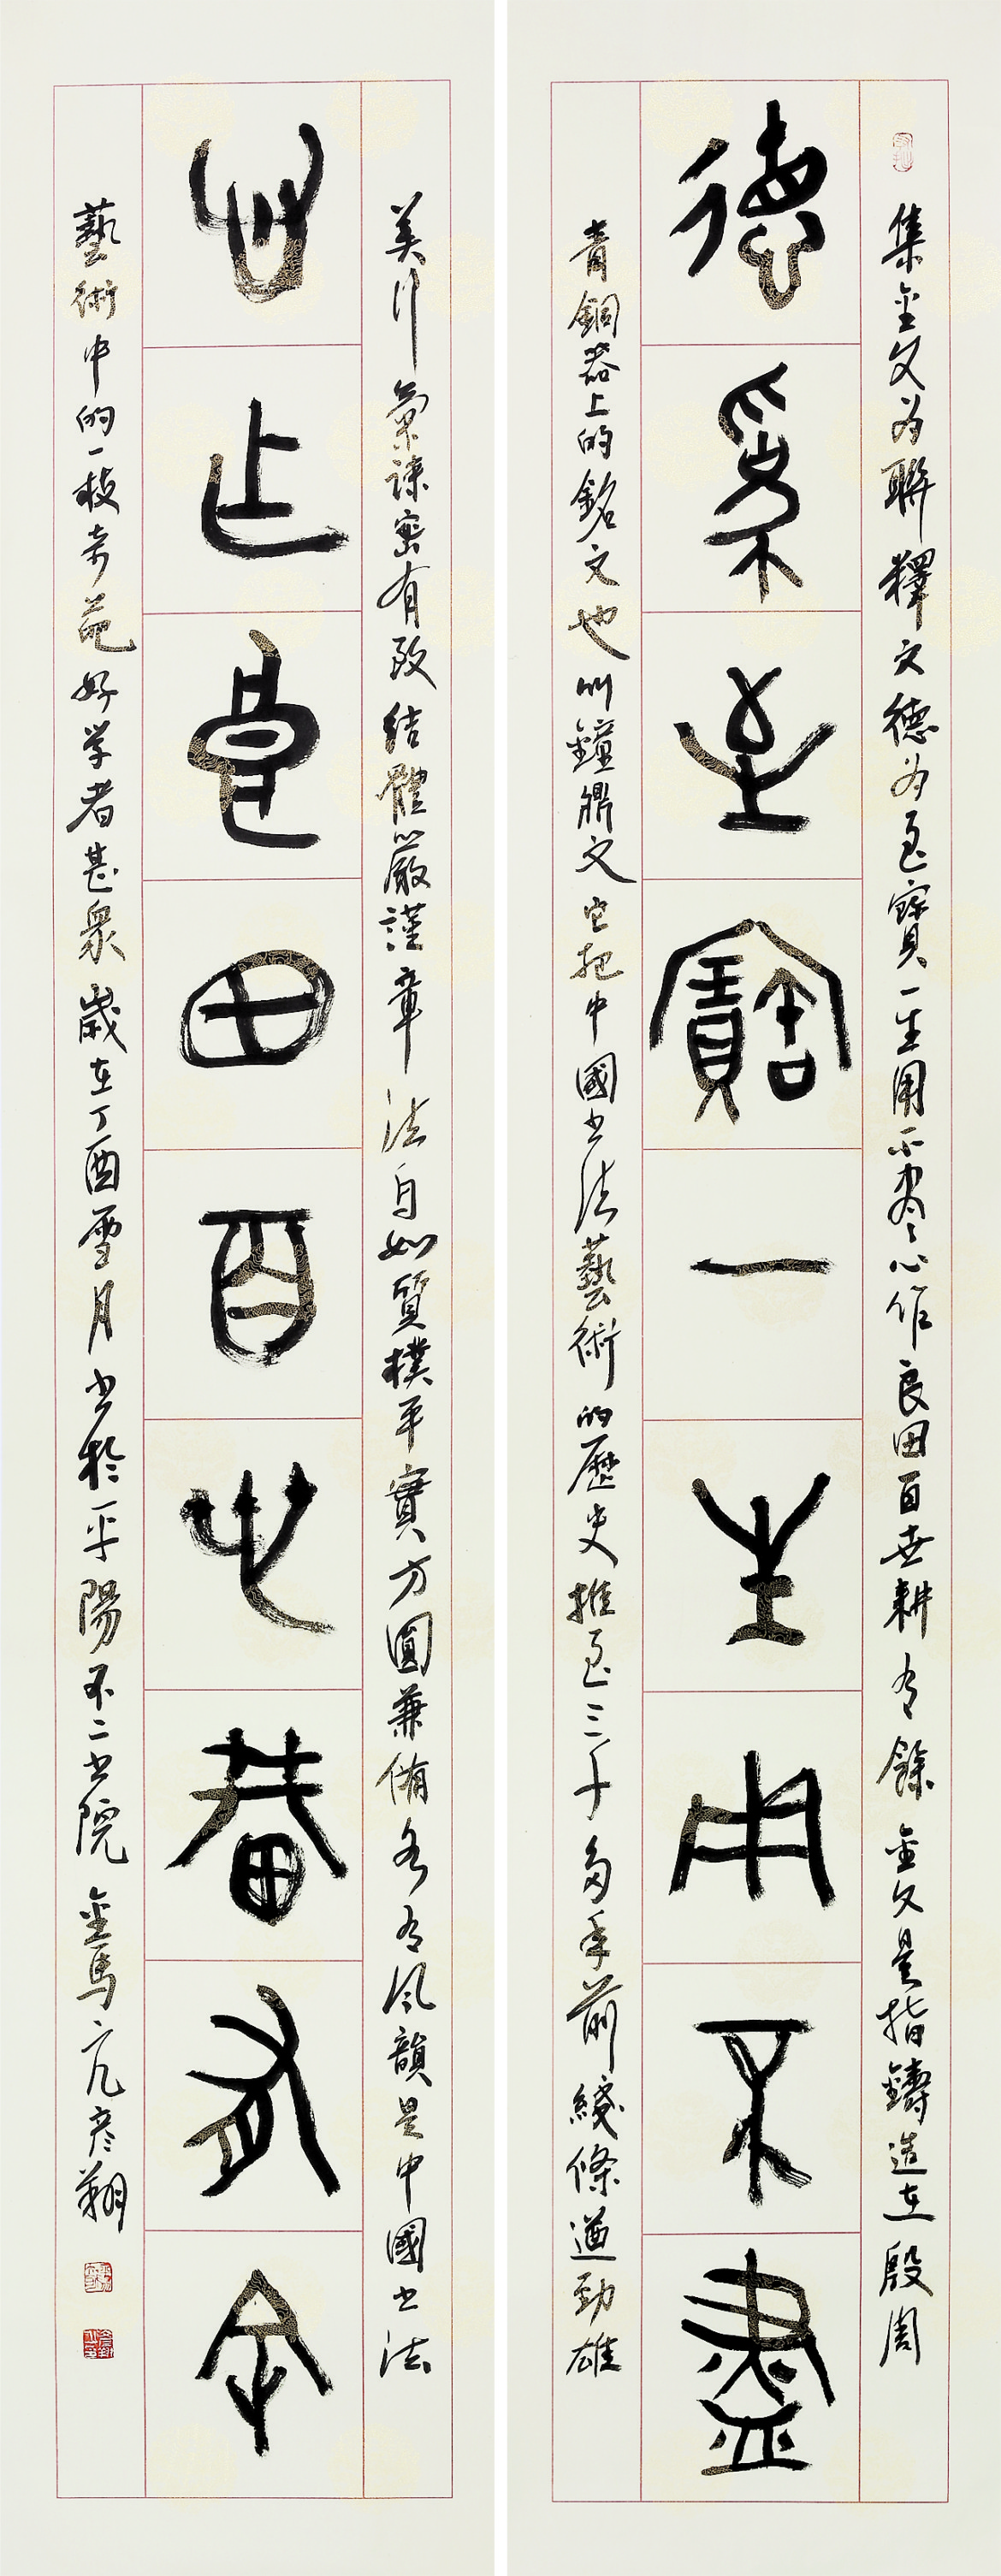 集金文为聯釋文德为至寶一生用不盡心作良田百世耕有餘金文是指鑄造在殷周
德為至寶一生用不盡
青銅器上的銘文也叫鐘鼎文它把中國书法藝術的歷史推至三千多年前綫條遒勁雄
美行氣疎密有致結體嚴謹章法自如質樸平實方圓兼備各有风韻是中國书法
心作良田百世耕有余
藝術中的一枝奇葩好学者甚衆歲在丁酉雪月书於平陽不二书院金馬亢彦翔